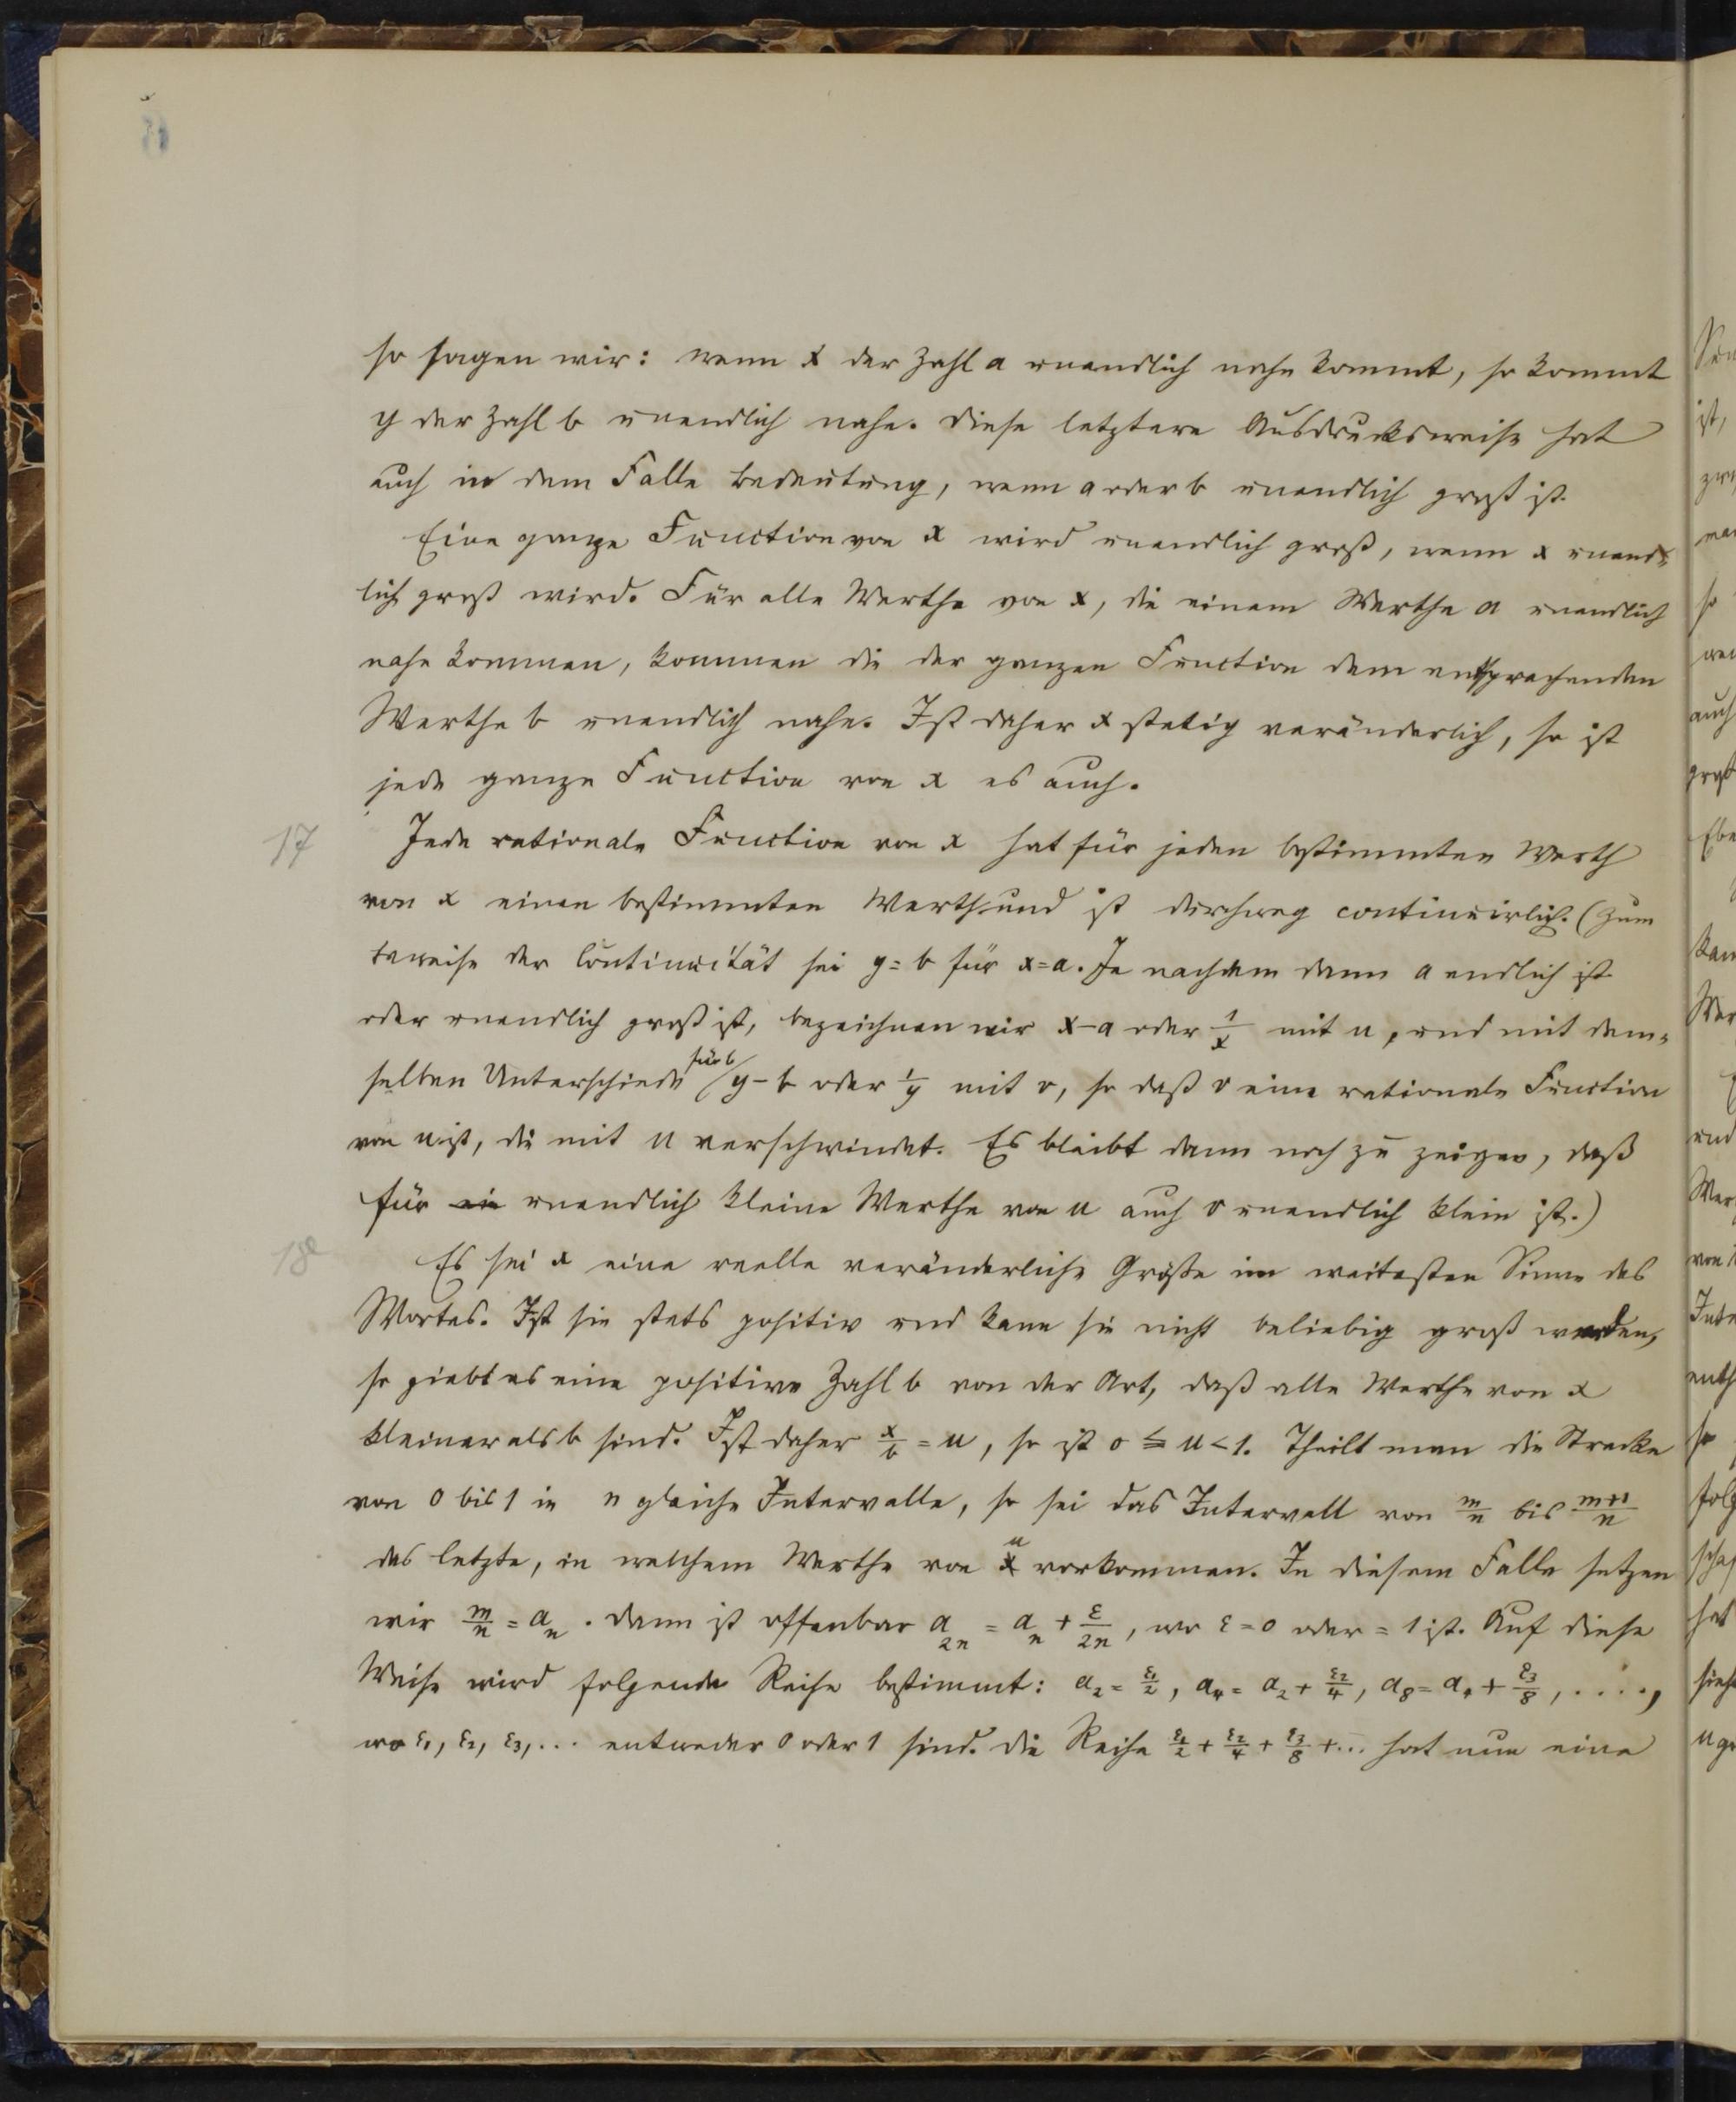 so sagen wir: wenn x der Zahl a unendlich nahe kommt, so kommt
y der Zahl b unendlich nahe. Diese letztere Ausdrucksweise hat
auch in dem Falle Bedeutung, wenn a oder b unendlich groß ist.
Eine ganze Function von x wird unendlich groß, wenn x unend-
lich groß wird. Für alle Werthe von x, die einem Werthe a unendlich
nahe kommen, kommen die der ganzen Function dem entsprechenden
Werthe b unendlich nahe. Ist daher x stetig veränderlich, so ist
jede ganze Function von x es auch.
17 Jede rationale Function von x hat für jeden bestimmten Werth
von x einen bestimmten Werth und ist durchweg continuirlich. (Zum
Beweise der Continuität sei y = b für x = a. Je nachdem dann a endlich ist
oder unendlich groß ist, bezeichnen wir x - a oder 1/x mit u, und mit dem-
selben Unterschiede für b y - b oder 1/y mit v, so daß v eine rationale Function
von u ist, die mit u verschwindet. Es bleibt dann noch zu zeigen, daß
für ein unendlich kleine Werthe von u auch v unendlich klein ist.)
18 Es sei x eine reelle veränderliche Größe im weitesten Sinne des
Wortes. Ist sie stets positiv und kann sie nicht beliebig groß werden,
so giebt es eine positive Zahl b von der Art, daß alle Werthe von x
kleiner als b sind. Ist daher x/b = u, so ist 0 ≦ u < 1. Theilt man die Strecke
von 0 bis 1 in n gleiche Intervalle, so sei das Intervall von m/n bis m+1/n
das letzte, in welchem Werthe von x u vorkommen. In diesem Falle setzen
wir m/n = a_n. Dann ist offenbar a_2n = a_n + ε/2n, wo ε = 0 oder = 1 ist. Auf diese
Weise wird folgende Reihe bestimmt: a_2 = ε_1/2, a_4 = a_2 + ε_2/4, a_8 = a_4 + ε_3/8, ....,
wo ε_1, ε_2, ε_3, ... entweder 0 oder 1 sind. Die Reihe ε_1/2 + ε_2/4 + ε_3/8 + ... hat nun eine